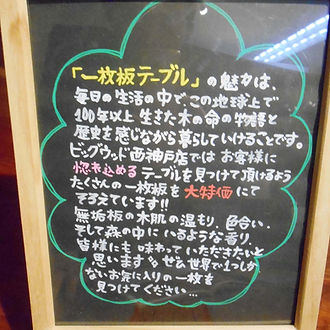 「一枚板テーブル」の魅力は、
毎日の生活の中で、この地球上で
100年以上生きた木の命の物語と
歴史を感じながら暮らしていけることです。
ビッグウッド西神戸店ではお客様に
惚れ込めるテーブルを見つけて頂けるよう
たくさんの一枚板を大特価にて
そろえています!!
無垢板の木肌の温もり、色合い、
そして森の中にいるような香り、
皆様にも味わっていただきたいと
思います。ぜひ世界で1つしか
ないお気に入りの一枚を
見つけてください…